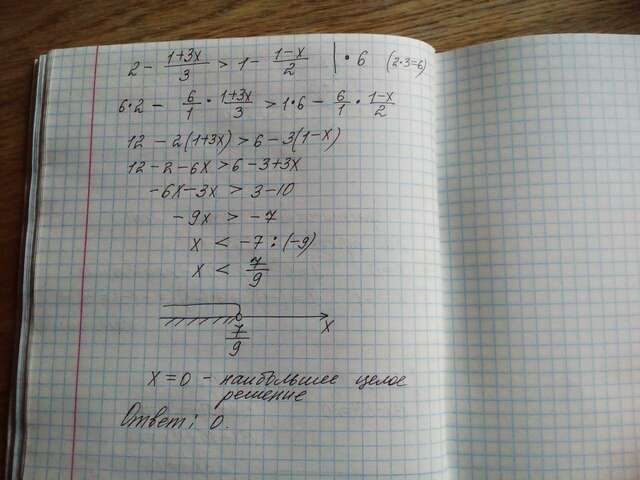 2 - (1+3x)/3 > 1 - (1-x)/2 | • 6 (2•3=6)
6•2 - 6/1 • (1+3x)/3 > 1•6 - 6/1 • (1-x)/2
12 - 2(1+3x) > 6 - 3(1-x)
12 - 2 - 6x > 6 - 3 + 3x
-6x - 3x > 3 - 10
-9x > -7
x < -7 : (-9)
x < 7/9
7/9 x
x = 0 - наибольшее целое
решение
Ответ: 0.